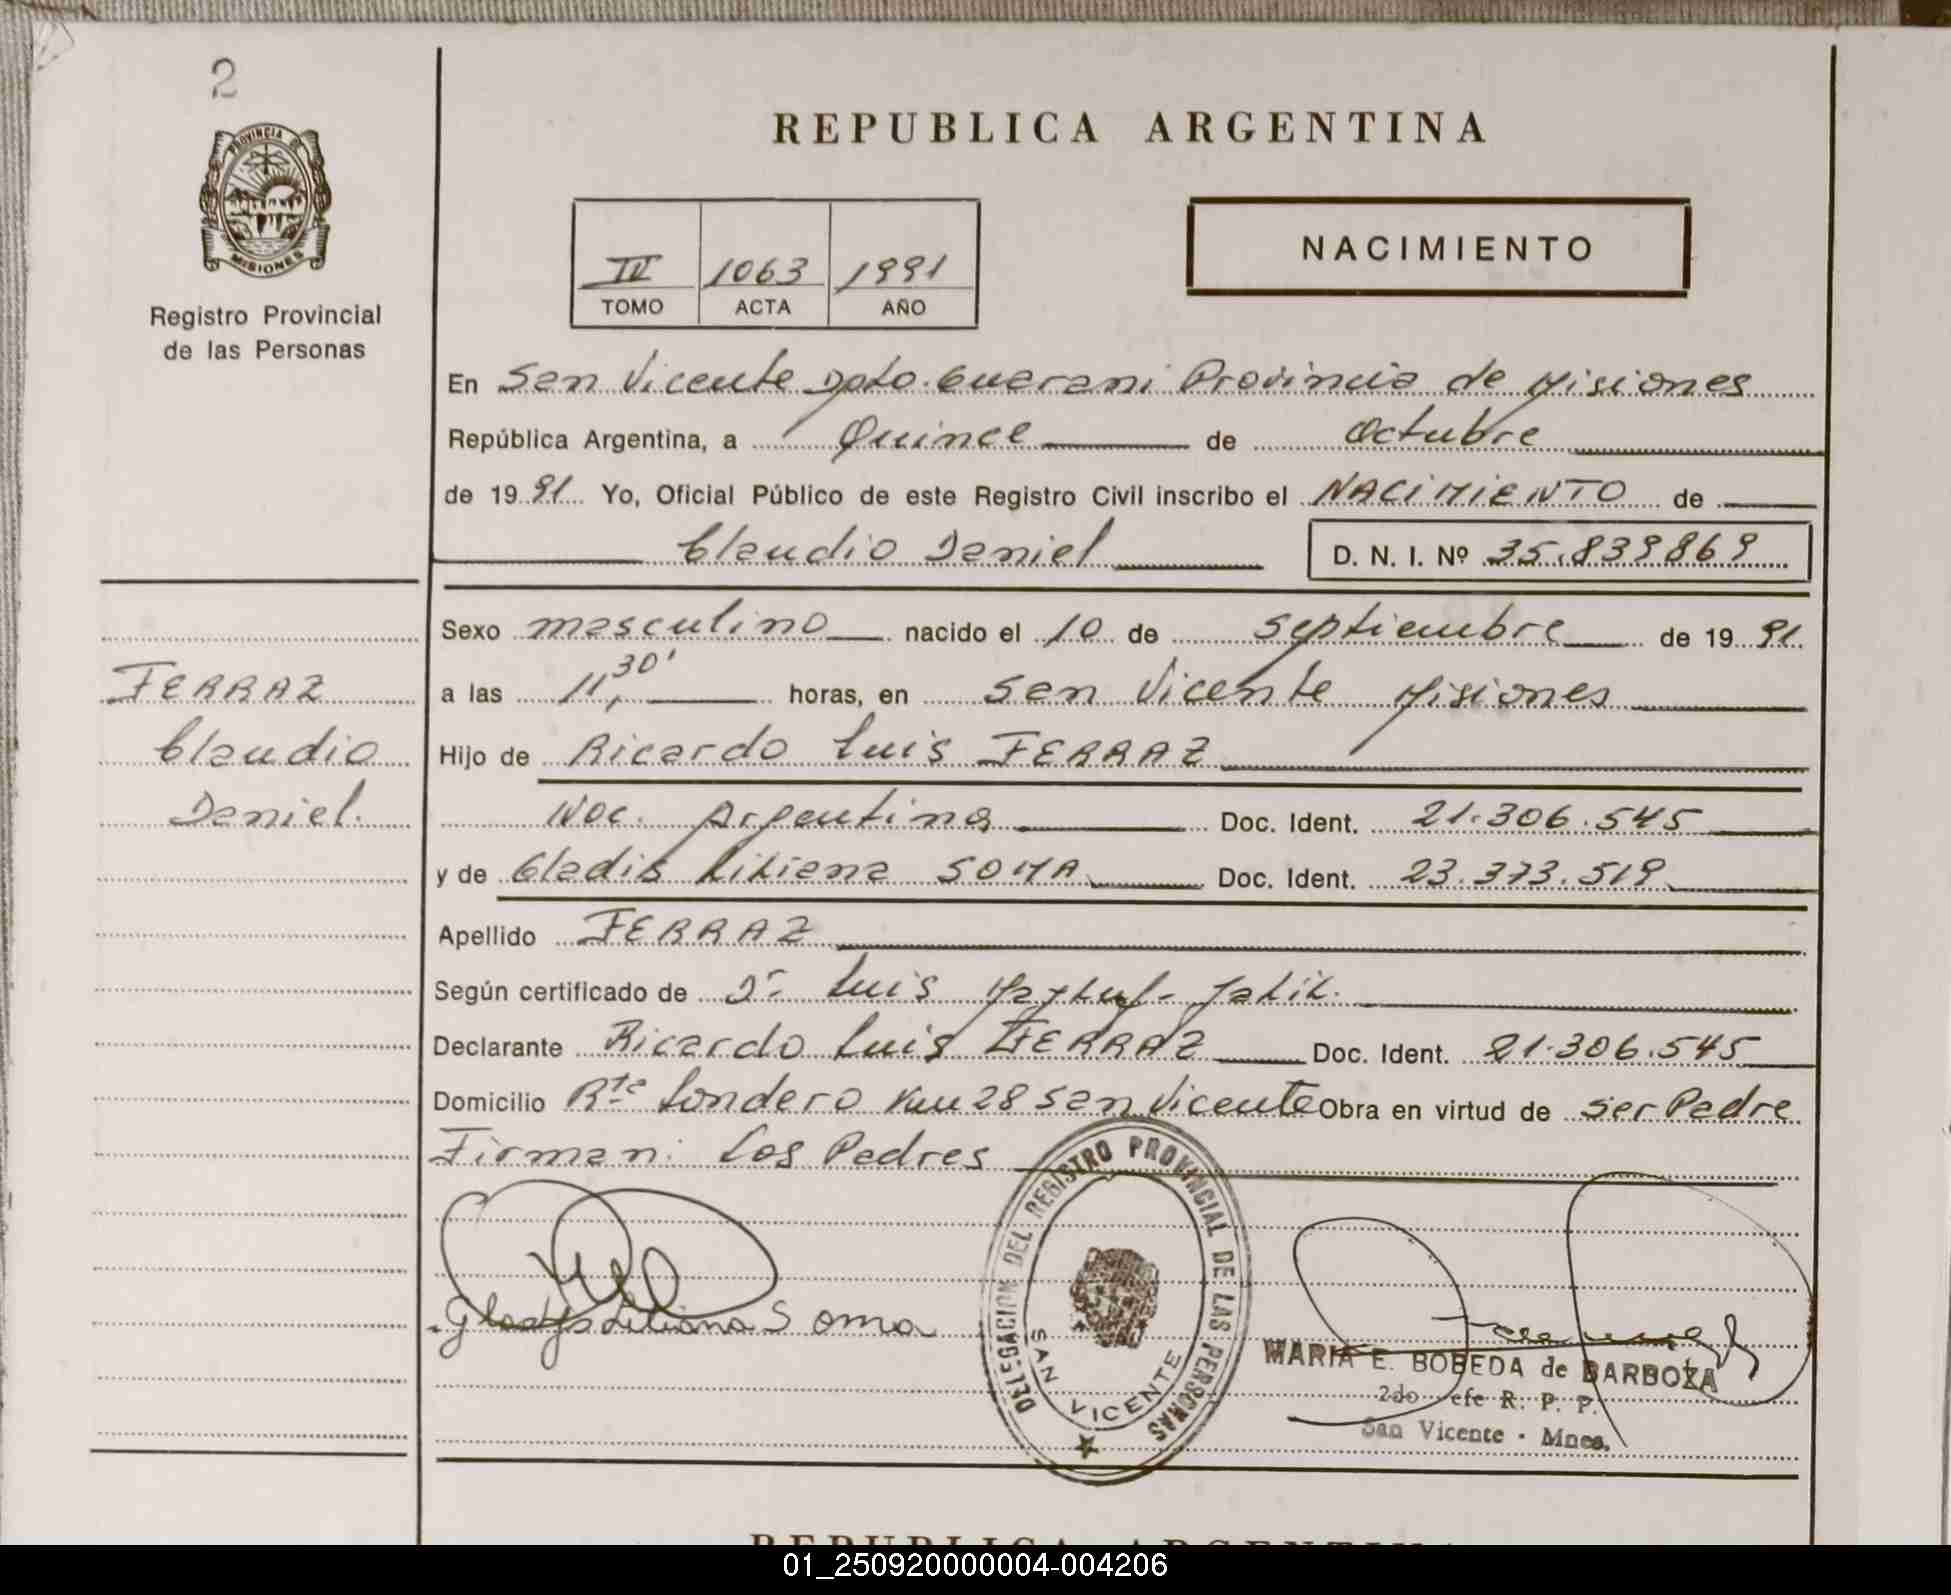 2
PROVINCIA DE
MISIONES
Registro Provincial
de las Personas
REPUBLICA ARGENTINA
IV 1063 1991
TOMO ACTA AÑO
NACIMIENTO
En San Vicente Dpto. Guarani Provincia de Misiones
República Argentina, a Quince de Octubre
de 1991 Yo, Oficial Público de este Registro Civil inscribo el NACIMIENTO de
Claudio Daniel D. N. I. Nº 35.839869
Sexo masculino nacido el 10 de Septiembre de 1991.
FERRAZ
Claudio
Daniel.
a las 11,30' horas, en San Vicente Misiones
Hijo de Ricardo Luis FERRAZ
Nac. Argentina Doc. Ident. 21.306.545
y de Gladis Liliana SOMA Doc. Ident. 23.373.519
Apellido FERRAZ
Según certificado de Dr. Luis
Declarante Ricardo Luis FERRAZ Doc. Ident. 21.306.545
Domicilio Rta Londero Km 28 San Vicente Obra en virtud de ser Padre
Firman: Los Padres
Gladys Liliana Soma
DELEGACION DEL REGISTRO PROVINCIAL DE LAS PERSONAS
SAN VICENTE
MARIA E. BOBEDA de BARBOZA
2do efe R. P. P.
San Vicente - Mnes.
REPUBLICA ARGENTINA
01_250920000004-004206